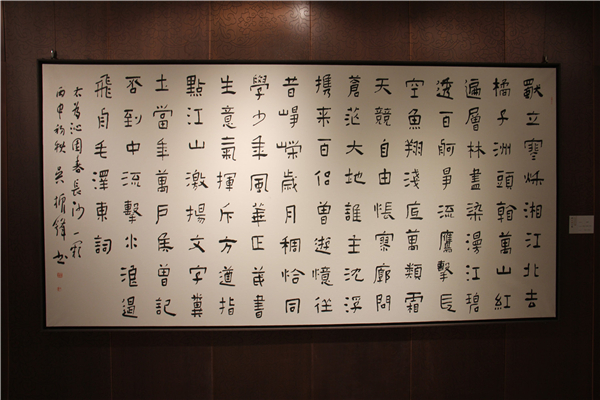 獨立寒秌湘江北去
橘子洲頭看萬山紅
遍層林盡染漫江碧
透百舸爭流鷹擊長
空魚翔淺底萬類霜
天競自由悵寥廓問
蒼茫大地誰主沈浮
攜來百侶曾遊憶往
昔崢嶸歲月稠恰同
學少年風華正茂書
生意氣揮斥方遒指
點江山激揚文字糞
土當年萬戶侯曾記
否到中流擊水浪遏
飛舟毛澤東詞
右為沁園春長沙一
丙申初秋吳振鋒書